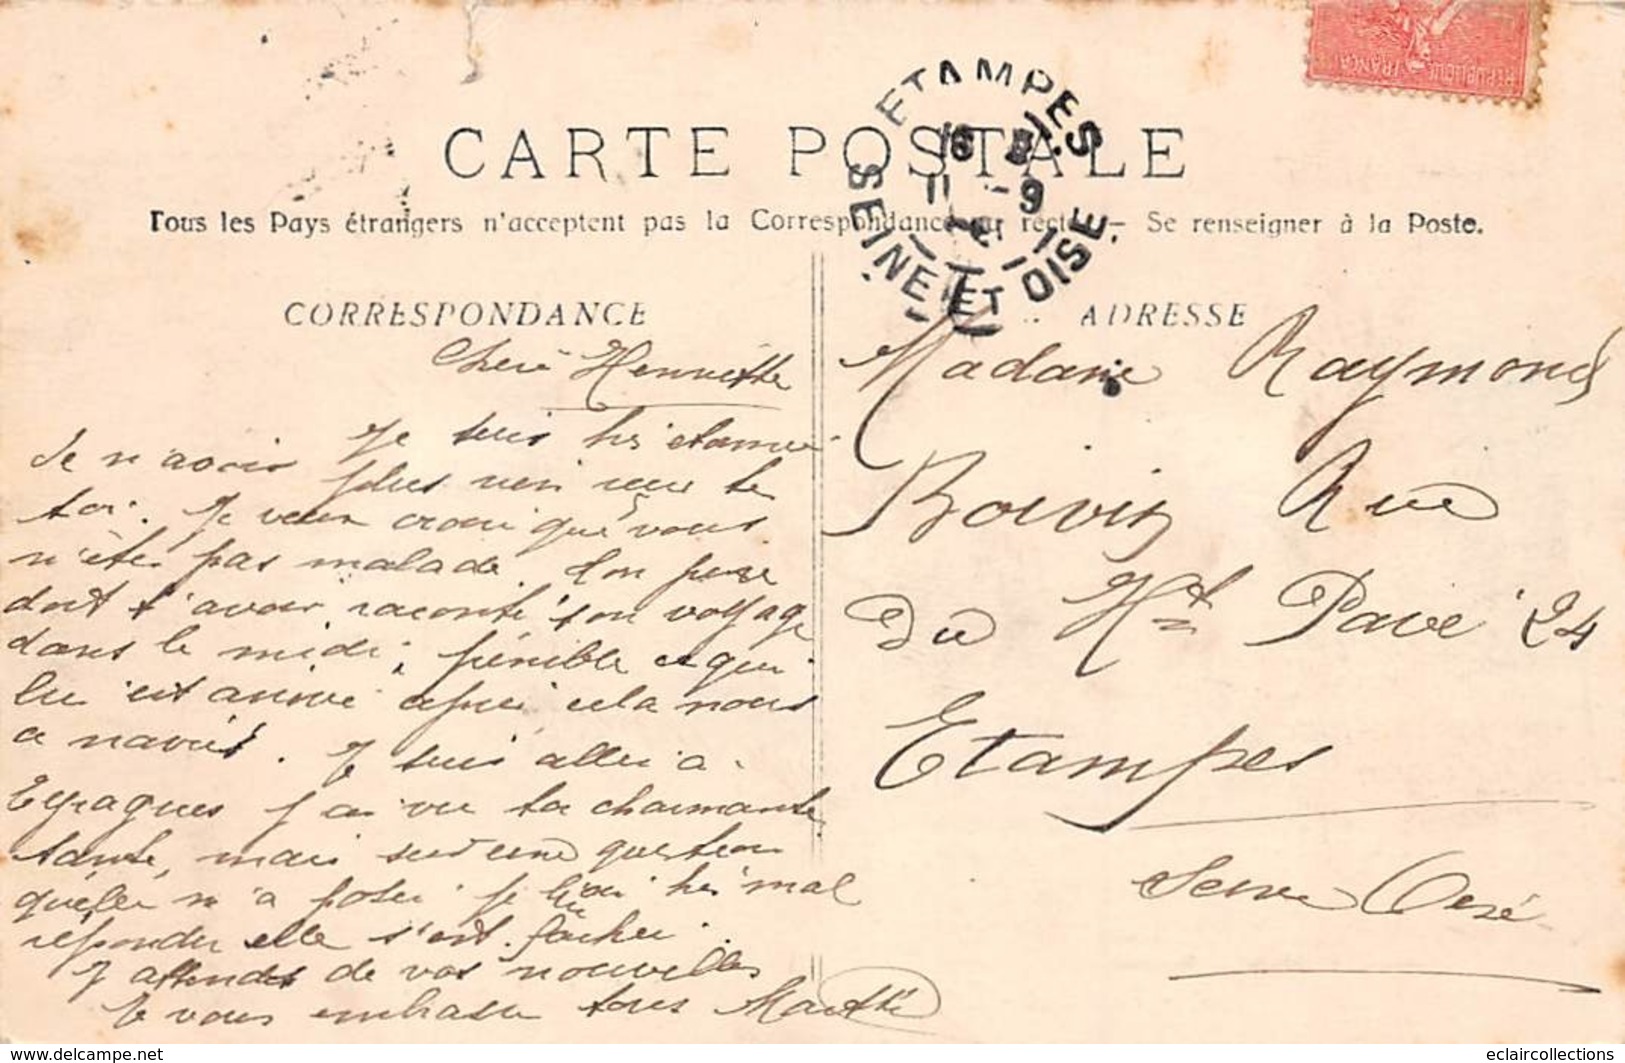 CARTE POSTALE
Tous les Pays étrangers n'acceptent pas la Correspondance au recto — Se renseigner à la Poste.
CORRESPONDANCE
ADRESSE
ETAMPES
16
11 -9
SEINE ET OISE
REPUBLIQUE FRANCAI
Cherè Henriette
Je suis tres etonneé
de n'avoir plus rien reçu de
toi. Je veux croire que vous
n'étes pas malade. Ton pere
doit t'avoir raconté son voyage
dans le midi, pénible ce qui
lui est arrivé apres cela nous
a navrés. Je suis allee a
Etampes j'ai vu ta charmante
tante, mais sur une question
qu'elle m'a poser je lui ai tres mal
répondu elle s'est fachee.
J'attends de vos nouvelles
Je vous embrasse tous Marthe
Madame Raymond
Boivin Rue
Du Ht Pavé 24
Etampes
Seine Oisé
www.delcampe.net
eclaircollections